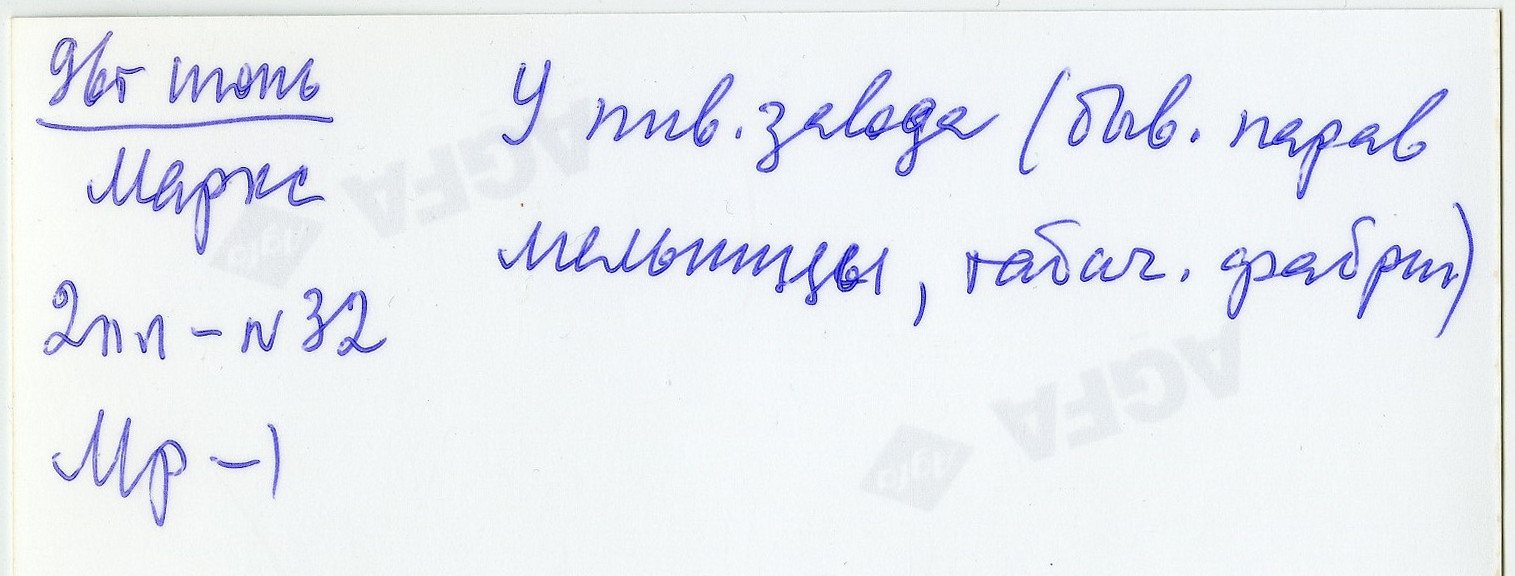 96г июнь
Маркс
2пл - N 32
Мр - 1
У пив. завода (быв. парав
мельницы, табач. фабрик)
AGFA
Agfa
AGFA
Agfa